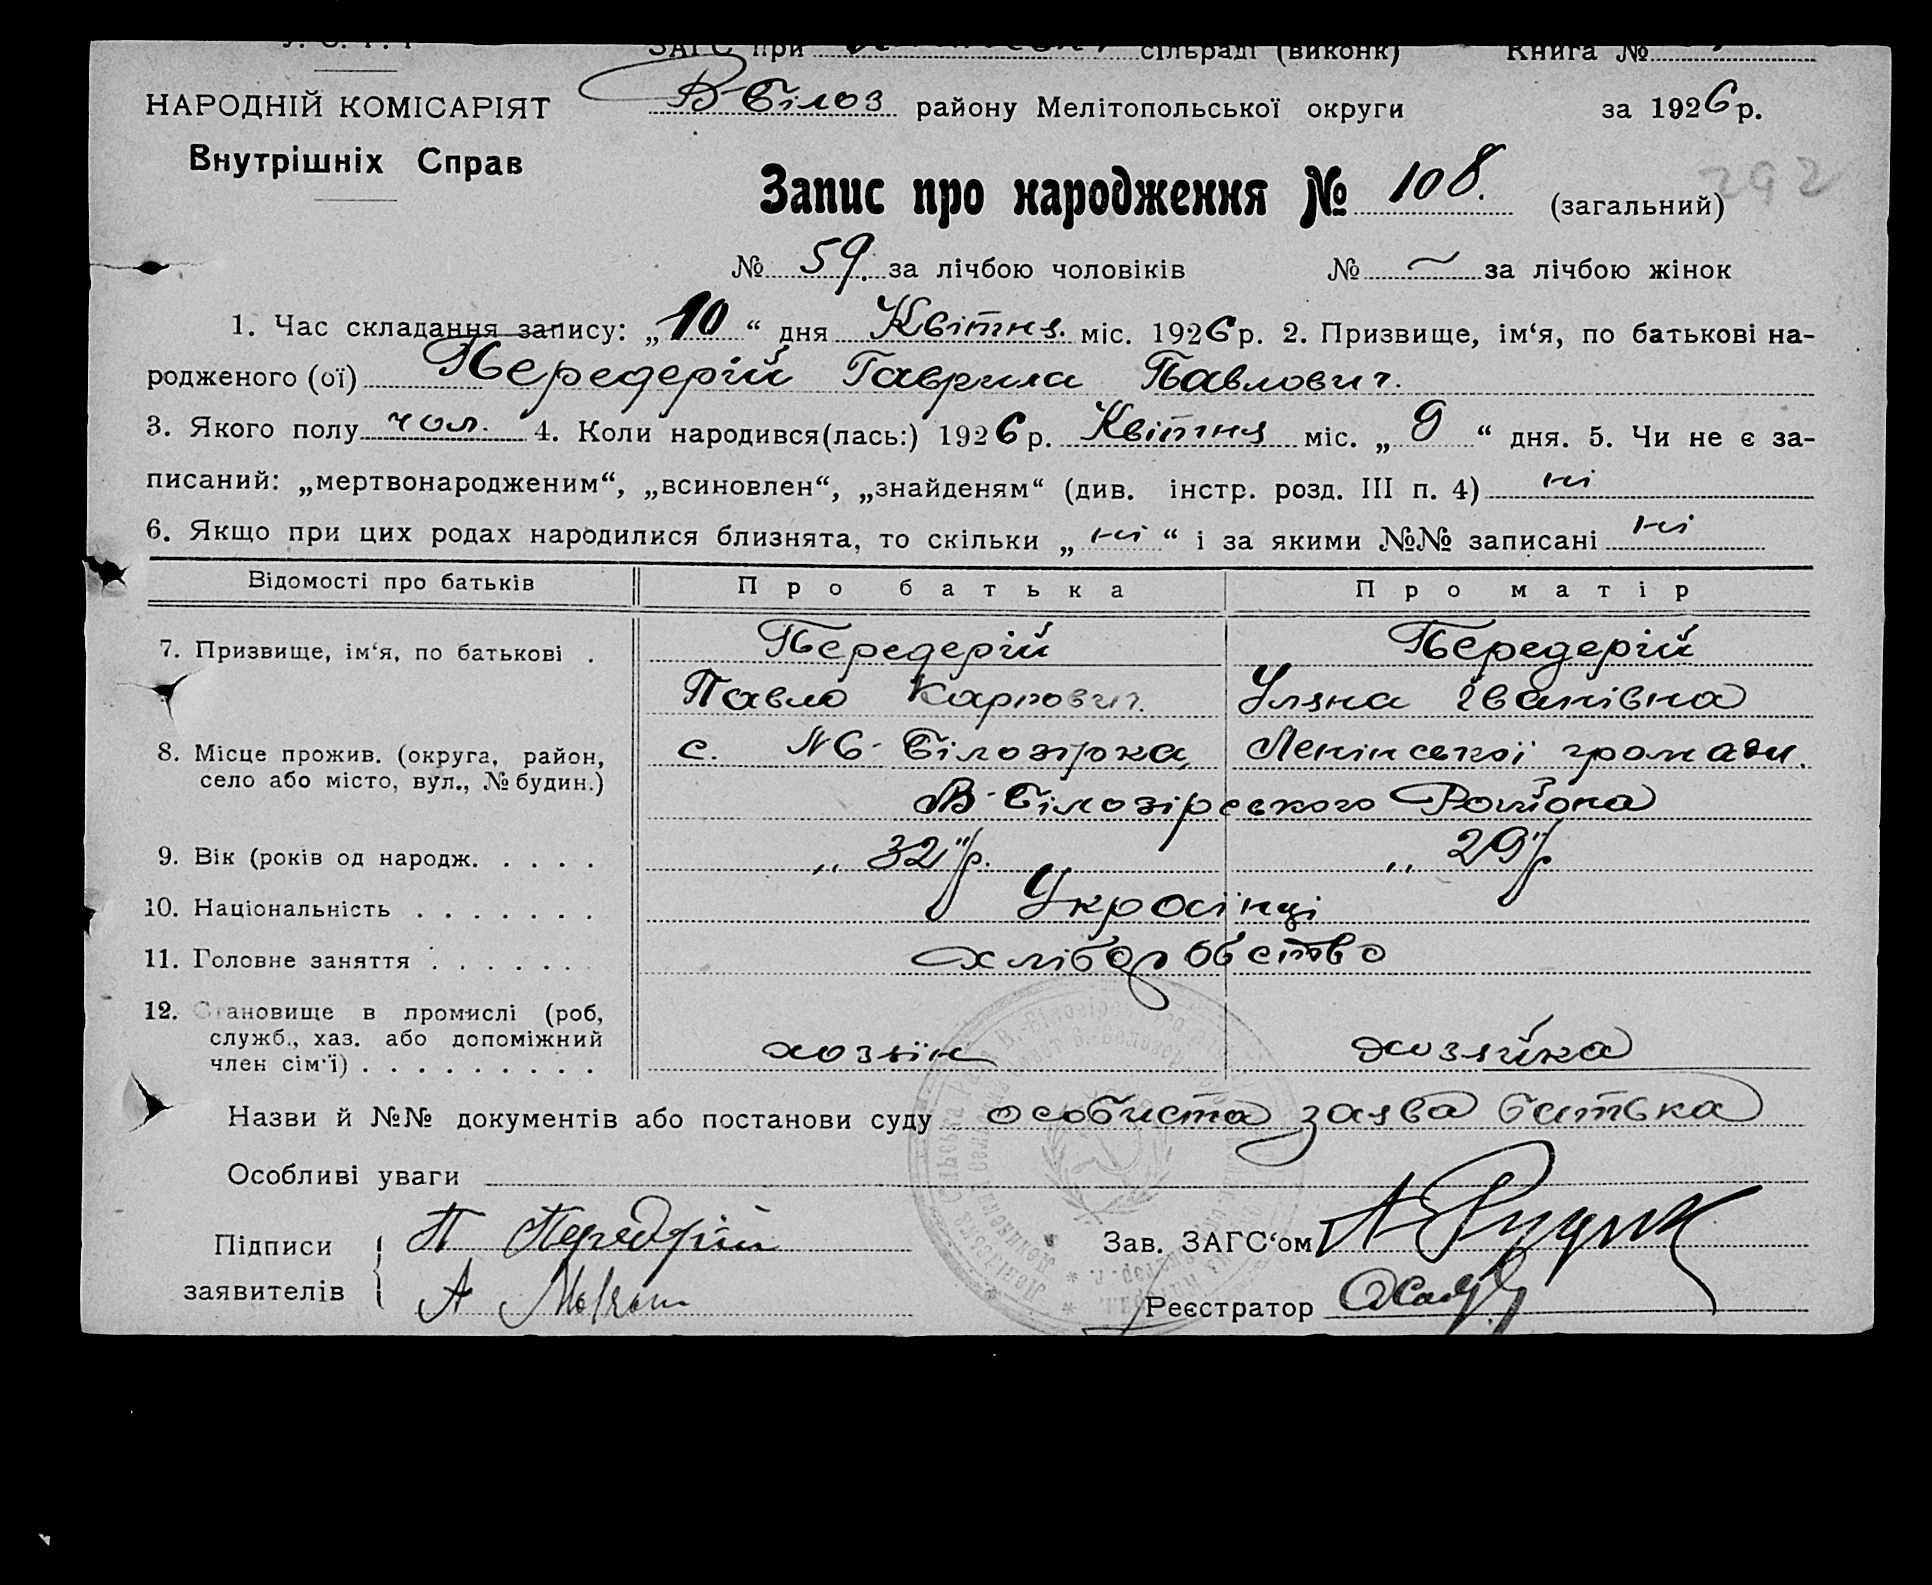 У. С. Р. Р
ЗАГС при сільраді (виконк) Книга №
НАРОДНІЙ КОМІСАРІЯТ В-Білоз району Мелітопольської округи за 1926 р.
Внутрішніх Справ
Запис про народження № 108. (загальний) 292
№ 59. за лічбою чоловіків № — за лічбою жінок
1. Час складання запису: „10“ дня Квітня. міс. 1926 р. 2. Призвище, ім‘я, по батькові на-
родженого (ої) Передерій Гаврила Павлович.
3. Якого полу чол. 4. Коли народився(лась:) 1926 р. Квітня міс. „9“ дня. 5. Чи не є за-
писаний: „мертвонародженим“, „всиновлен“, „знайденям“ (див. інстр. розд. III п. 4) ні
6. Якщо при цих родах народилися близнята, то скільки „ні“ і за якими №№ записані ні
Відомості про батьків Про батька Про матір
7. Призвище, ім‘я, по батькові . Передерій Передерій
Павло Карпович. Уляна Іванівна
8. Місце прожив. (округа, район, с. Білозірка, Ленінської громади.
село або місто, вул., № будин.) В-Білозірського Района
9. Вік (років од народж. . . . . „ 32 р. „ 29 р
10. Національність . . . . . . . Українці
11. Головне заняття . . . . . . хліборобство
12. Становище в промислі (роб,
служб., хаз. або допоміжний хозяїн хозяйка
член сім‘ї) . . . . . . . . .
Назви й №№ документів або постанови суду особиста заява батька
Особливі уваги
Підписи П Передерій Зав. ЗАГС‘ом
заявителів А Реєстратор